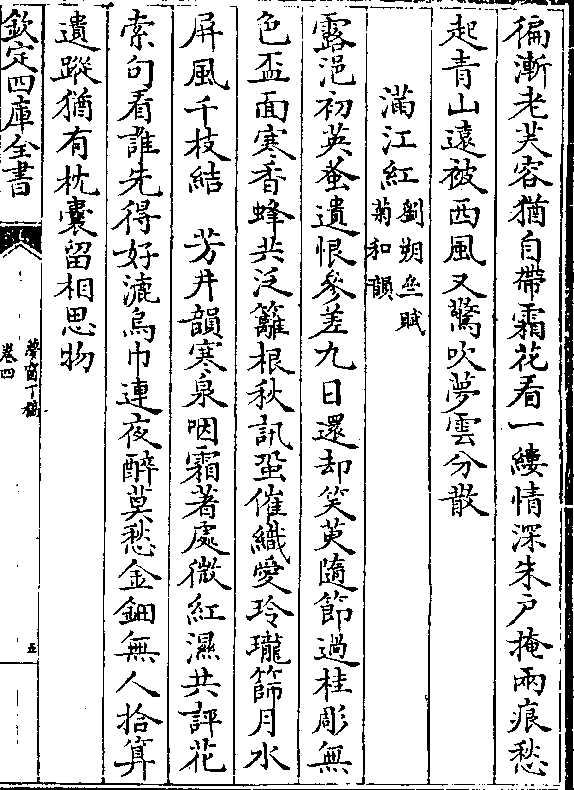 徧漸老芙容猶自帶霜花看一縷情深朱戸掩兩痕愁
起青山遠被西風又驚吹夢雲分散
滿江紅
劉朔齋賦
菊和韻
露浥初英蚤遺恨參差九日還却笑萸隨節過桂彫無
色盃面寒香蜂共泛籬根秋訊蛩催織愛玲瓏篩月水
屏風千枝結　芳井韻寒泉咽霜著處微紅濕共評花
索句看誰先得好漉烏巾連夜醉莫愁金鈿無人拾算
遺蹤猶有枕囊留相思物
欽定四庫全書
夢窗丁稿
卷四
五